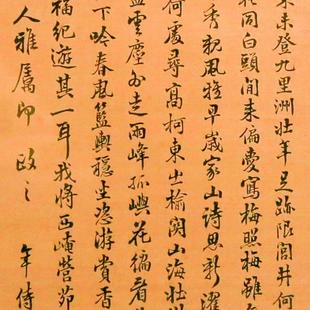 未登九里洲壯年足跡限閭井何
同白頭閒来偏愛寫梅照梅雖
秀親風雅早歲家山詩思新濯
何處尋高柯東出榆関山海壮
雲塵外走兩峰孤嶼花徧看
下吟春風籃輿穩坐恣游賞香
福紀遊其一耳我将西崦營茆
人雅屬即政之
年侍